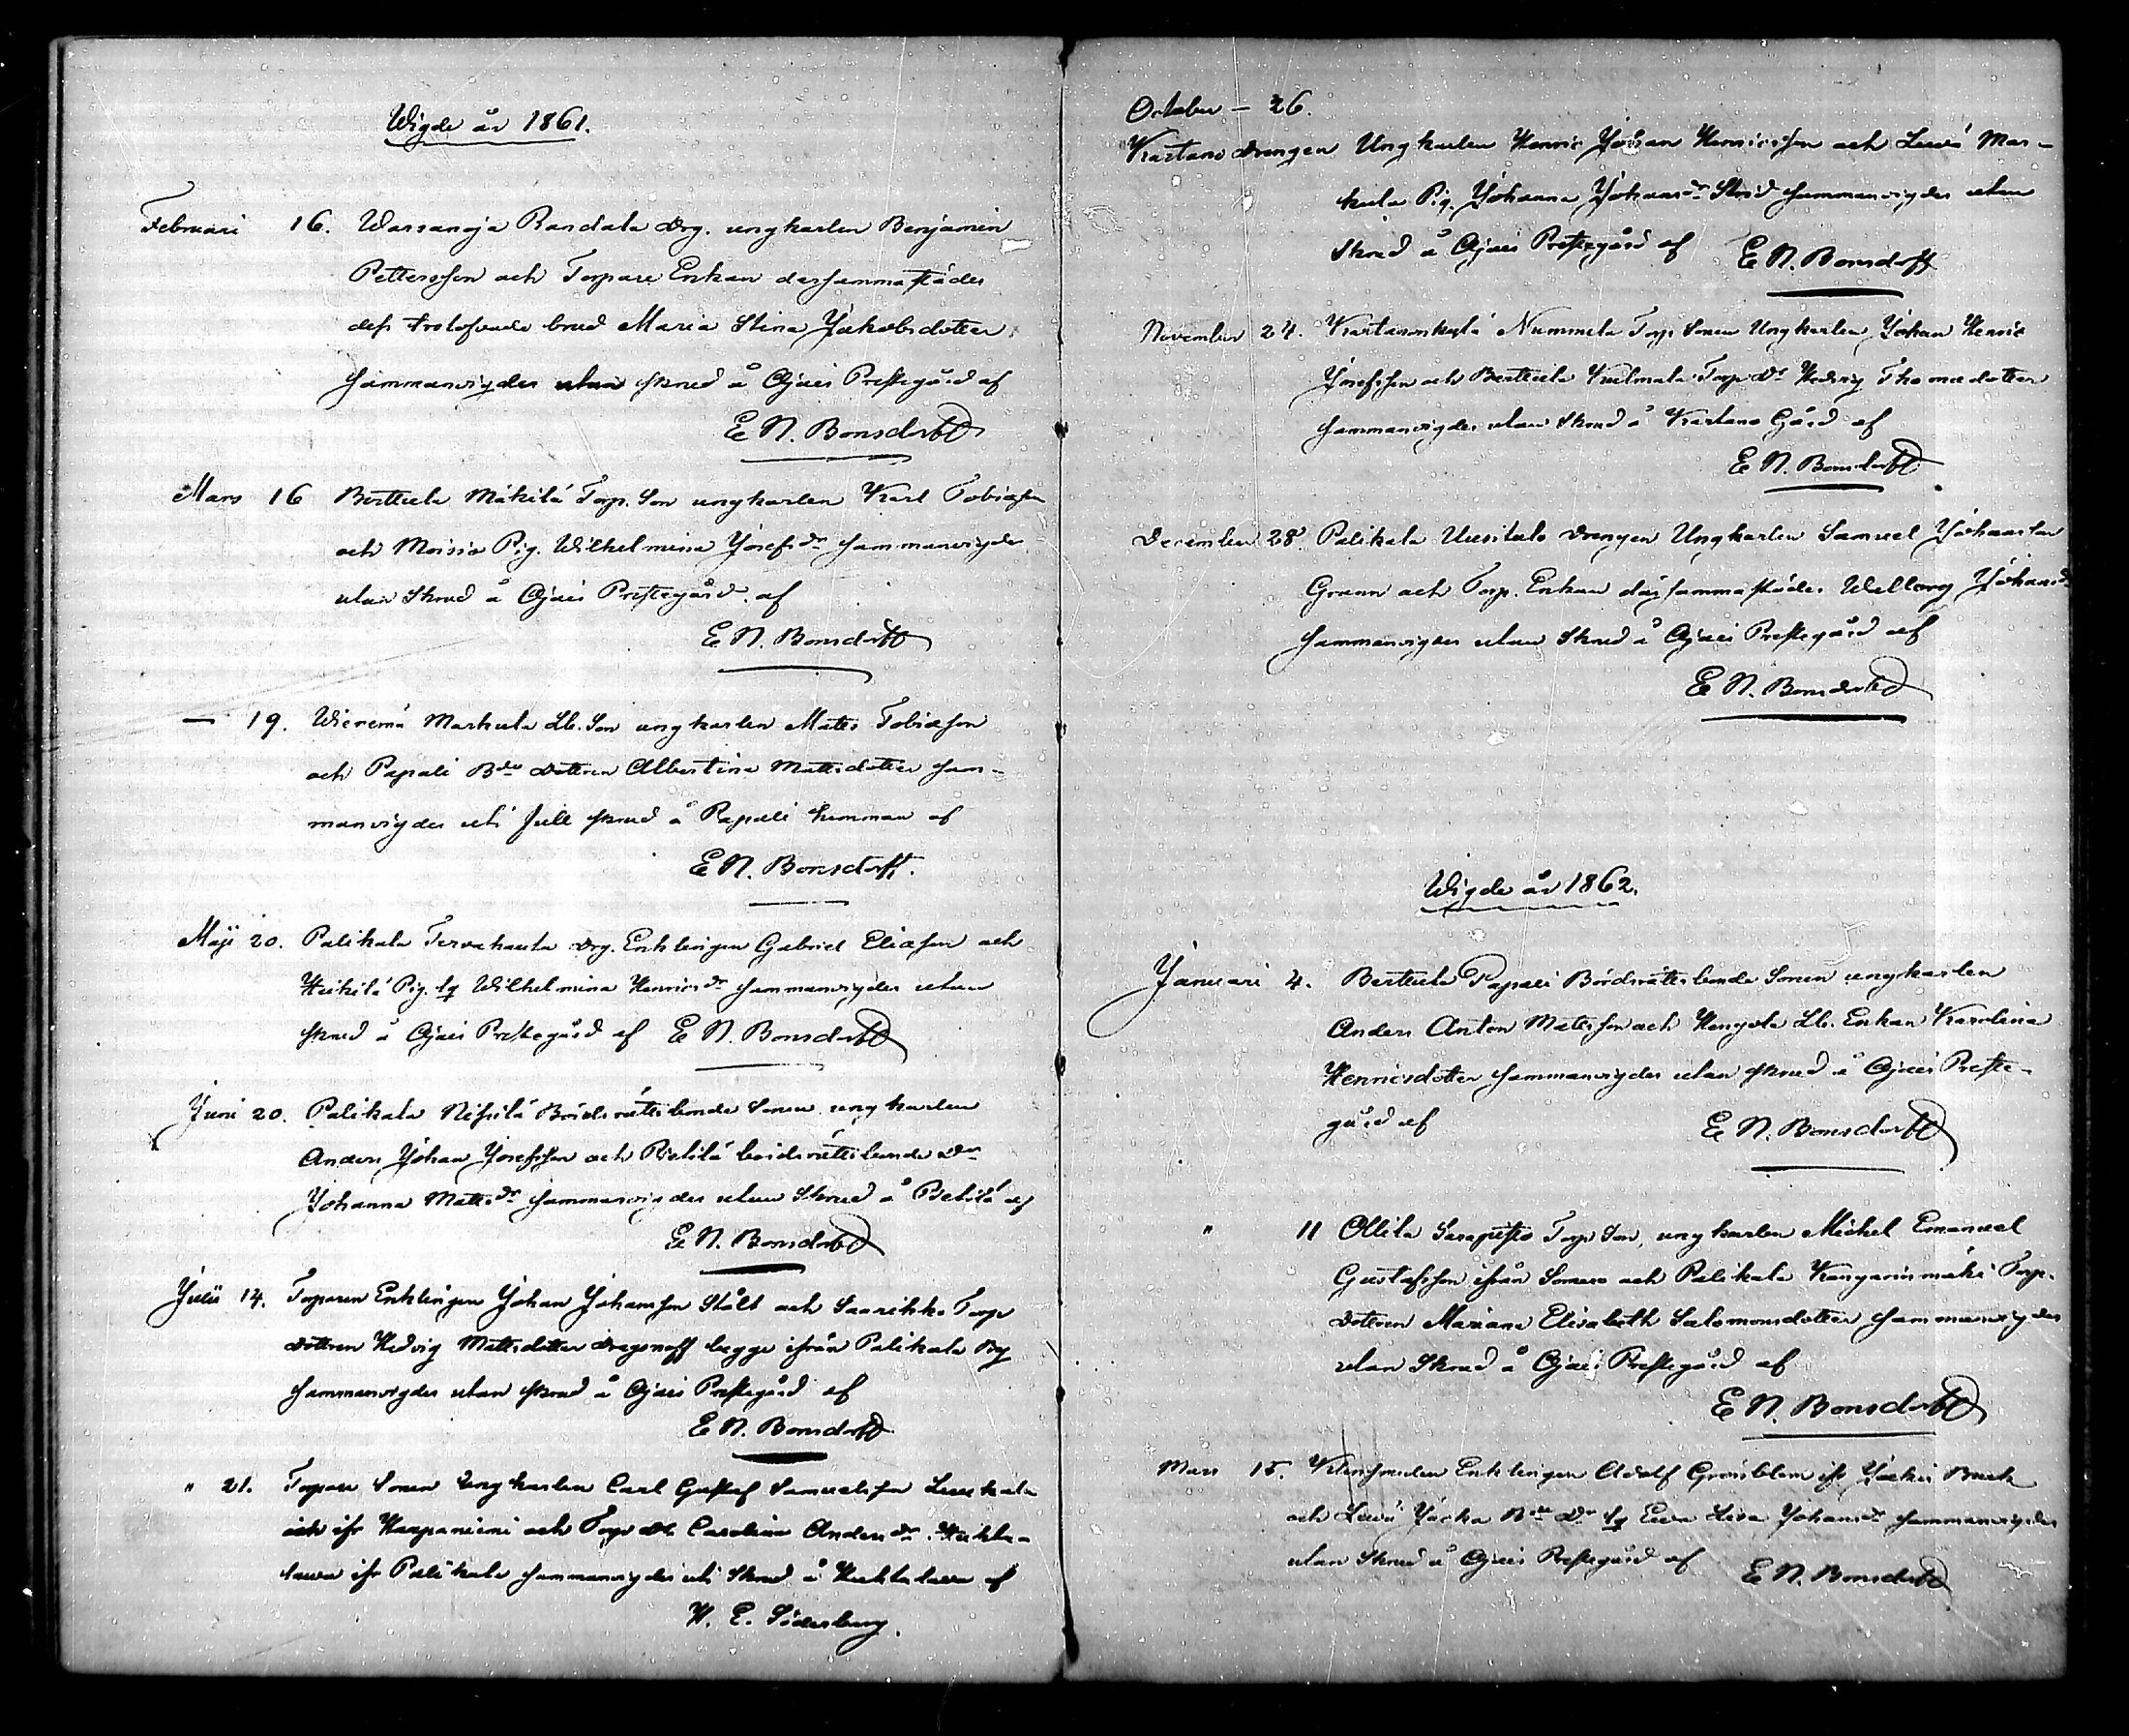 Wigde år 1861.
Februari 16. Warsanoja Randala Drg. ungkarlen Benjamin
Pettersson och Torpare Enkan dersammastädes
dess trolofvade brud Maria Stina Jakobsdotter,
sammanvigdes utan skrud å Ojais Prestegård af
E N. Bonsdorff
Mars 16 Berttula Mäkilä Torp. Son ungkarlen Karl Tobiasson
och Moisio Pig. Wilhelmina Josefsdr sammanvigdes
utan Skrud å Ojais Prestegård af
E N. Bonsdorff
— 19. Wieremä Markula Lb. Son ungkarlen Matts Tobiasson
och Papali Bdes dottren Albertina Mattsdotter sam-
manvigdes uti full skrud å Papali hemman af
E N. Bonsdorff.
Maji 20. Palikala Tervahauta Drg. Enklingen Gabriel Eliasson och
Heikilä Pig. Wilhelmina Henricsdr sammanvigdes utan
skrud å Ojais Prestegård af E N. Bonsdorff
Juni 20. Palikala Nissilä Bördsrättsbonde Sonen ungkarlen
Anders Johan Josefsson och Pietilä bördsrättsbonde Dr
Johanna Mattsdr sammanvigdes utan Skrud å Pietilä af
E N. Bonsdorff
Julii 14. Torparen Enklingen Johan Johansson Stålt och Saarikko Torp
dottren Hedvig Mattsdotter begge ifrån Palikala By
sammanvigdes utan skrud å Ojais Prestegård af
E N. Bonsdorff
" 21. Torpare Sonen Ungkarlen Carl Gustaf Samuelsson
och ifr Haapaniemi och Torp Dr Carolina Andersdr Huhta-
ifr Palikala sammanvigdes uti Skrud å af
H. E. Söderberg.
October — 26.
Kartano drengen Ungkarlen Henric Johan Henricsson och Mar-
kula Pig. Johanna Johansdr Strid sammanvigdes utan
Skrud å Ojais Prestegård af E N. Bonsdorff
November 24. Kartanonkylä Nummela Torp. Sonen Ungkarlen Johan Henric
Josefsson och Berttula Kulmala Torp. Dr Hedvig Thomasdotter
sammanvigdes utan Skrud å Kartano Gård af
E N. Bonsdorff
December 28. Palikala Uusitalo drengen Ungkarlen Samuel Johansson
Grann och Torp. Enkan därsammastädes Walborg Johansdr
sammanvigdes utan Skrud å Ojais Prestegård af
E N. Bonsdorff
Wigde år 1862.
Januari 4. Berttula Papali Bördsrättsbonde Sonen ungkarlen
Anders Anton Matsson och Hengola Lb. Enkan Karolina
Henricsdotter sammanvigdes utan skrud å Ojais Preste-
gård af E N. Bonsdorff
" 11 Ollila Torp Son, ungkarlen Michel Emanuel
Gustafsson ifrån Somero och Palikala Kangarinmäki Torp.
dottren Mariana Elisabeth Salomonsdotter sammanvigdes
utan Skrud å Ojais Prestegård af
E N. Bonsdorff
Mars 15. Klensmeden Enklingen Adolf Grönblom ifr Jockis Bruk
och Bde Dr Eva Lisa Johansdr sammanvigdes
utan Skrud å Ojais Prestegård af E N. Bonsdorff